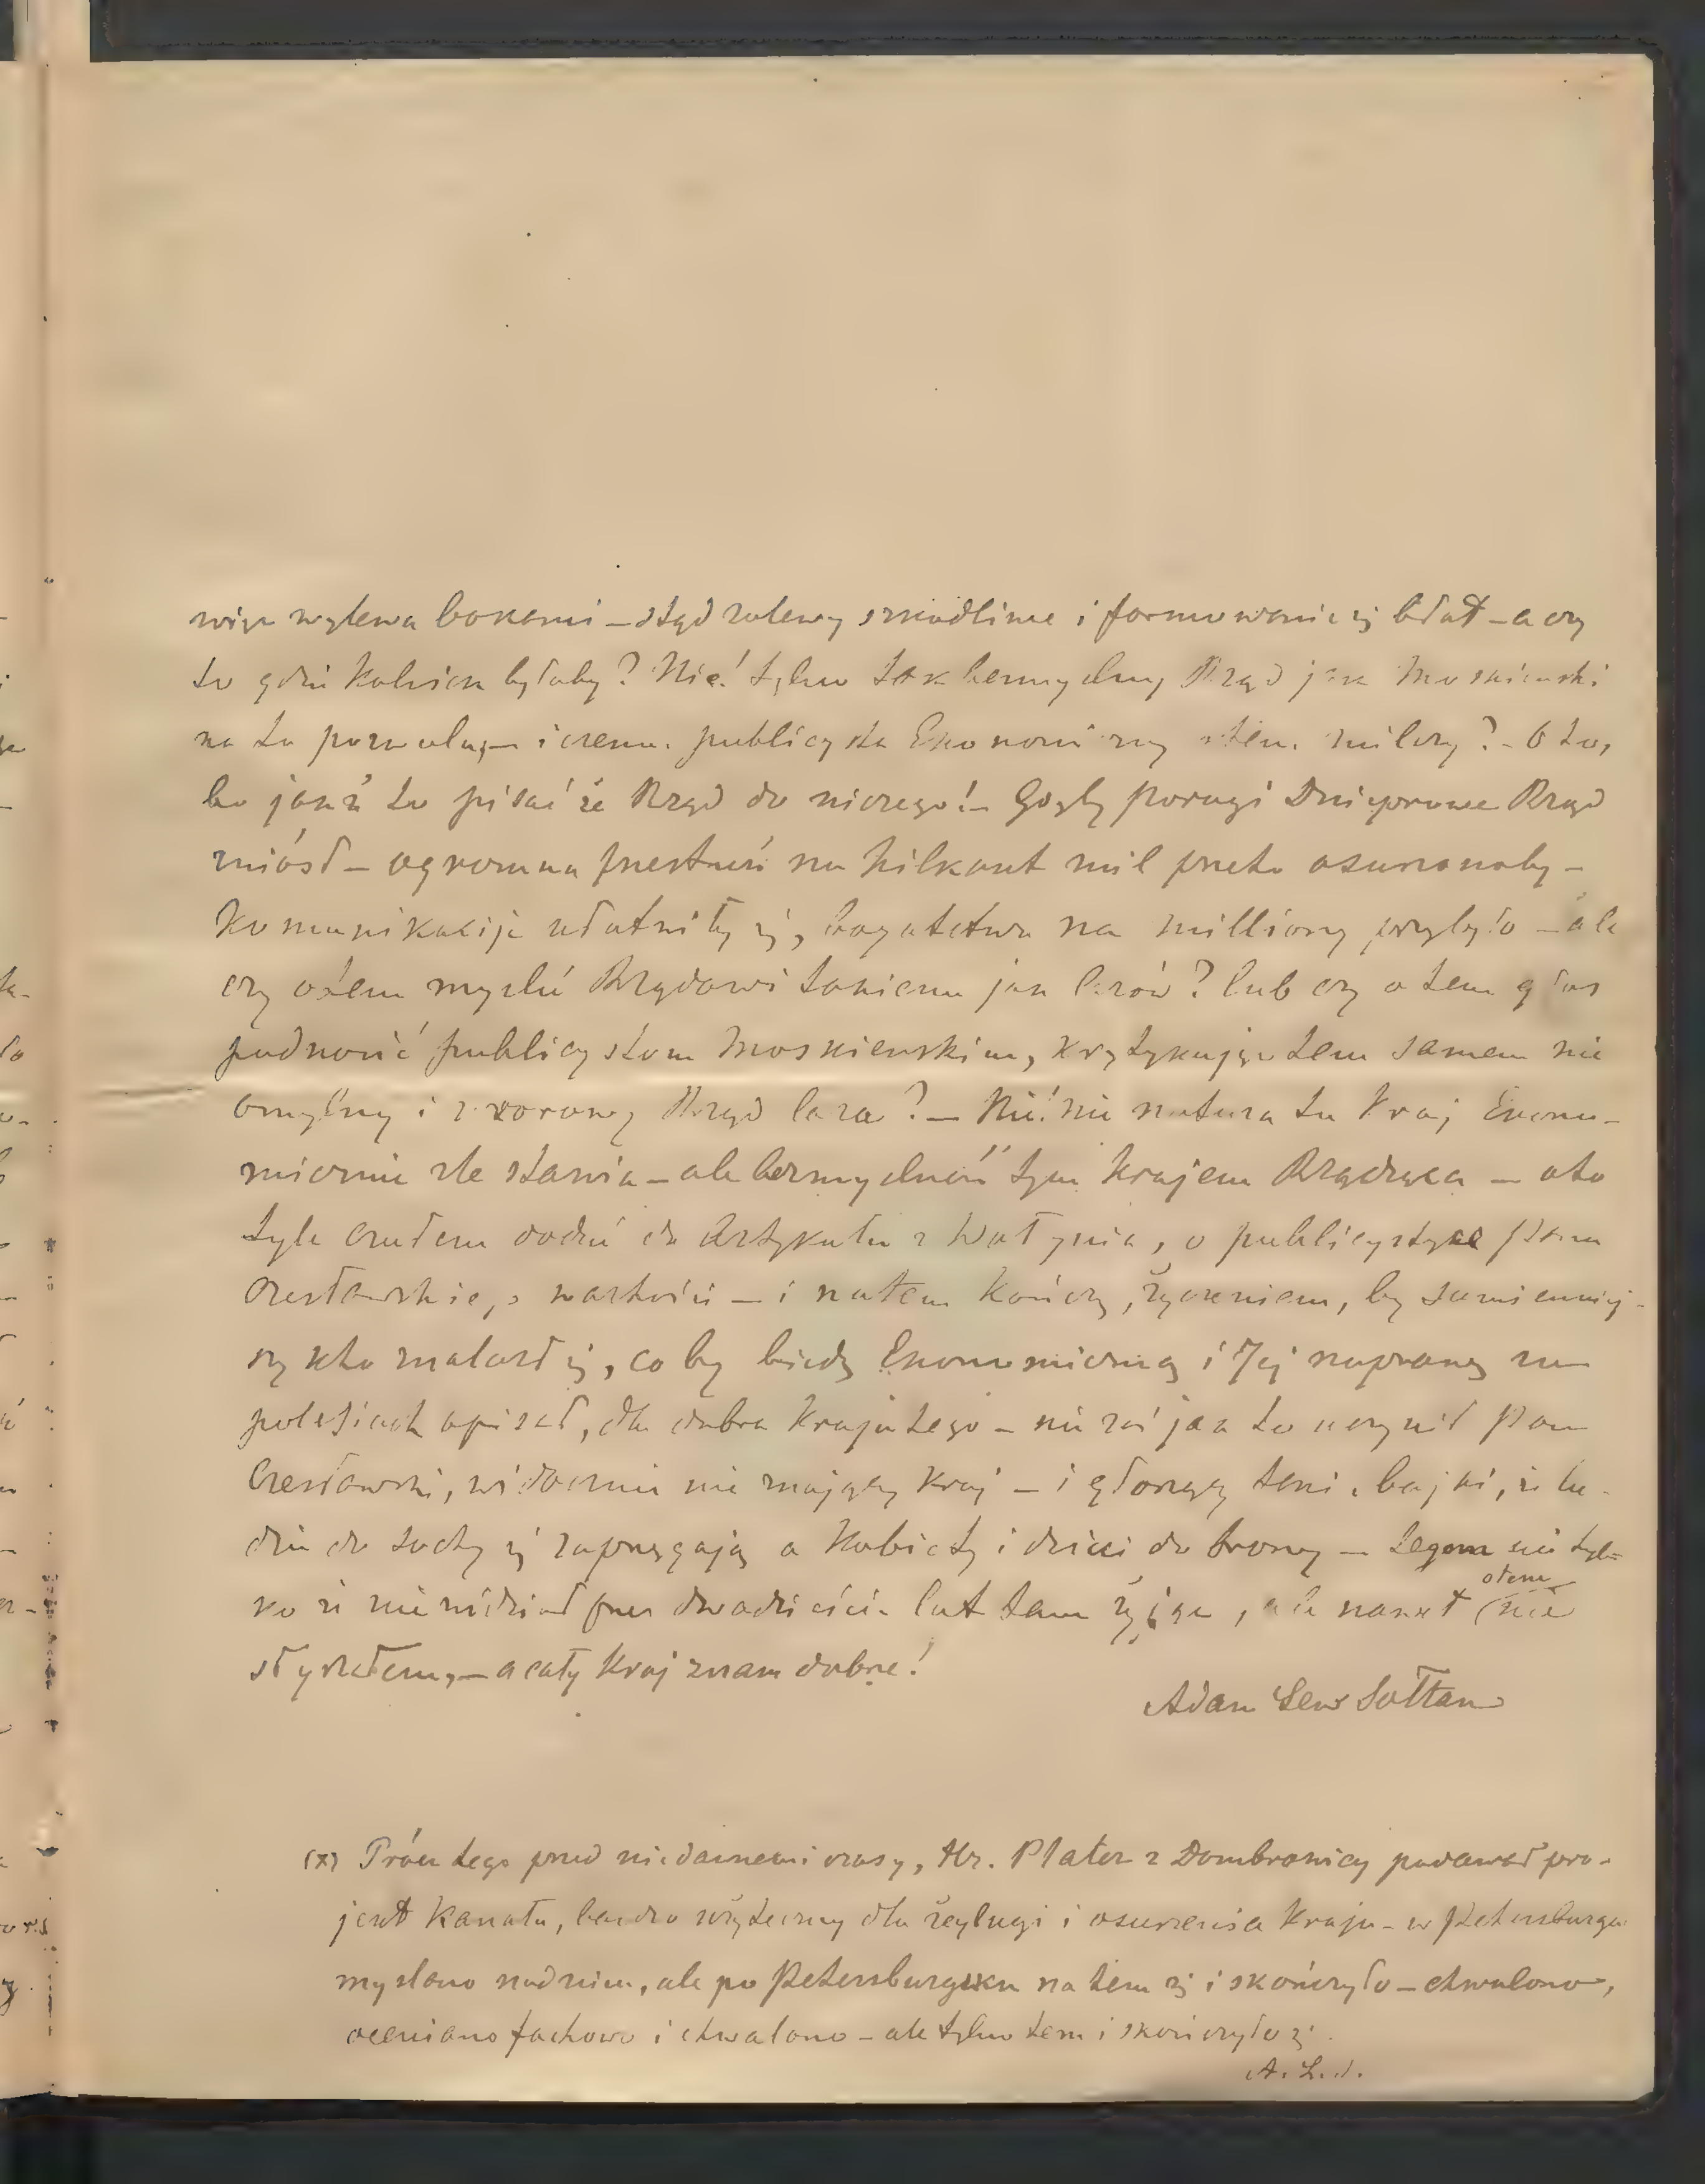 więc wylewa bokami – stąd zalewy szkodliwe i formowanie się błot – a czy
to gdzie kolwiek byłoby? Nie! tylko tak bezmyślny Rząd jak Moskiewski
na to pozwala, – i czemu publicysta Ekonomiczny o tem milczy? – Oto,
bo jakże to pisać że Rząd do niczego! – Gdyby porogi Dnieprowe Rząd
zniósł – ogromna przestrzeń na kilkaset mil przeto osuszonaby –
Komunikacije ułatwiły się, bogatctwa na milliony przybyło – ale
czy o tem myśleć Rządowi takiemu jak Carów? lub czy o tem głos
podnosić publicystom Moskiewskim, krytykując tem samem nie
omylny i wzorowy Rząd Cara? – Nie! nie natura tu kraj Ekono-
micznie źle stawia – ale bezmyślność tym krajem Rządząca – oto
tyle czułem dodać do Artykułu z Wołynia, o publicystyce Pana
Czesławskiego wartości – i na tem kończę, życzeniem, by sumienniej-
szy kto znalazł się, coby biedę Ekonomiczną i Jej naprawę na
polesiach opisał, dla dobra Kraju tego – nie zaś jak to uczynił Pan
Czesławski, widocznie nie znający kraj – i głoszący bajki, że lu-
dzie do sochy się zaprzęgają a Kobiety i dzieci do brony – tegom nie tyl-
ko że nie widział przez dwadzieścia lat tam żyjąc, ale nawet o tem nie
słyszałem, – a cały Kraj znam dobrze!
Adam Lew Sołtan
(x) Prócz tego przed niedawnemi czasy, Hr. Plater z Dombrowicy podawał pro-
jekt Kanału, bardzo użyteczny dla żeglugi i osuszenia Kraju – w Petersburgu
myślano nad nim, ale po Petersbursku na tem się i skończyło – chwalono,
oceniano fachowo i chwalono – ale tylko tem i skończyło się.
A. L. S.